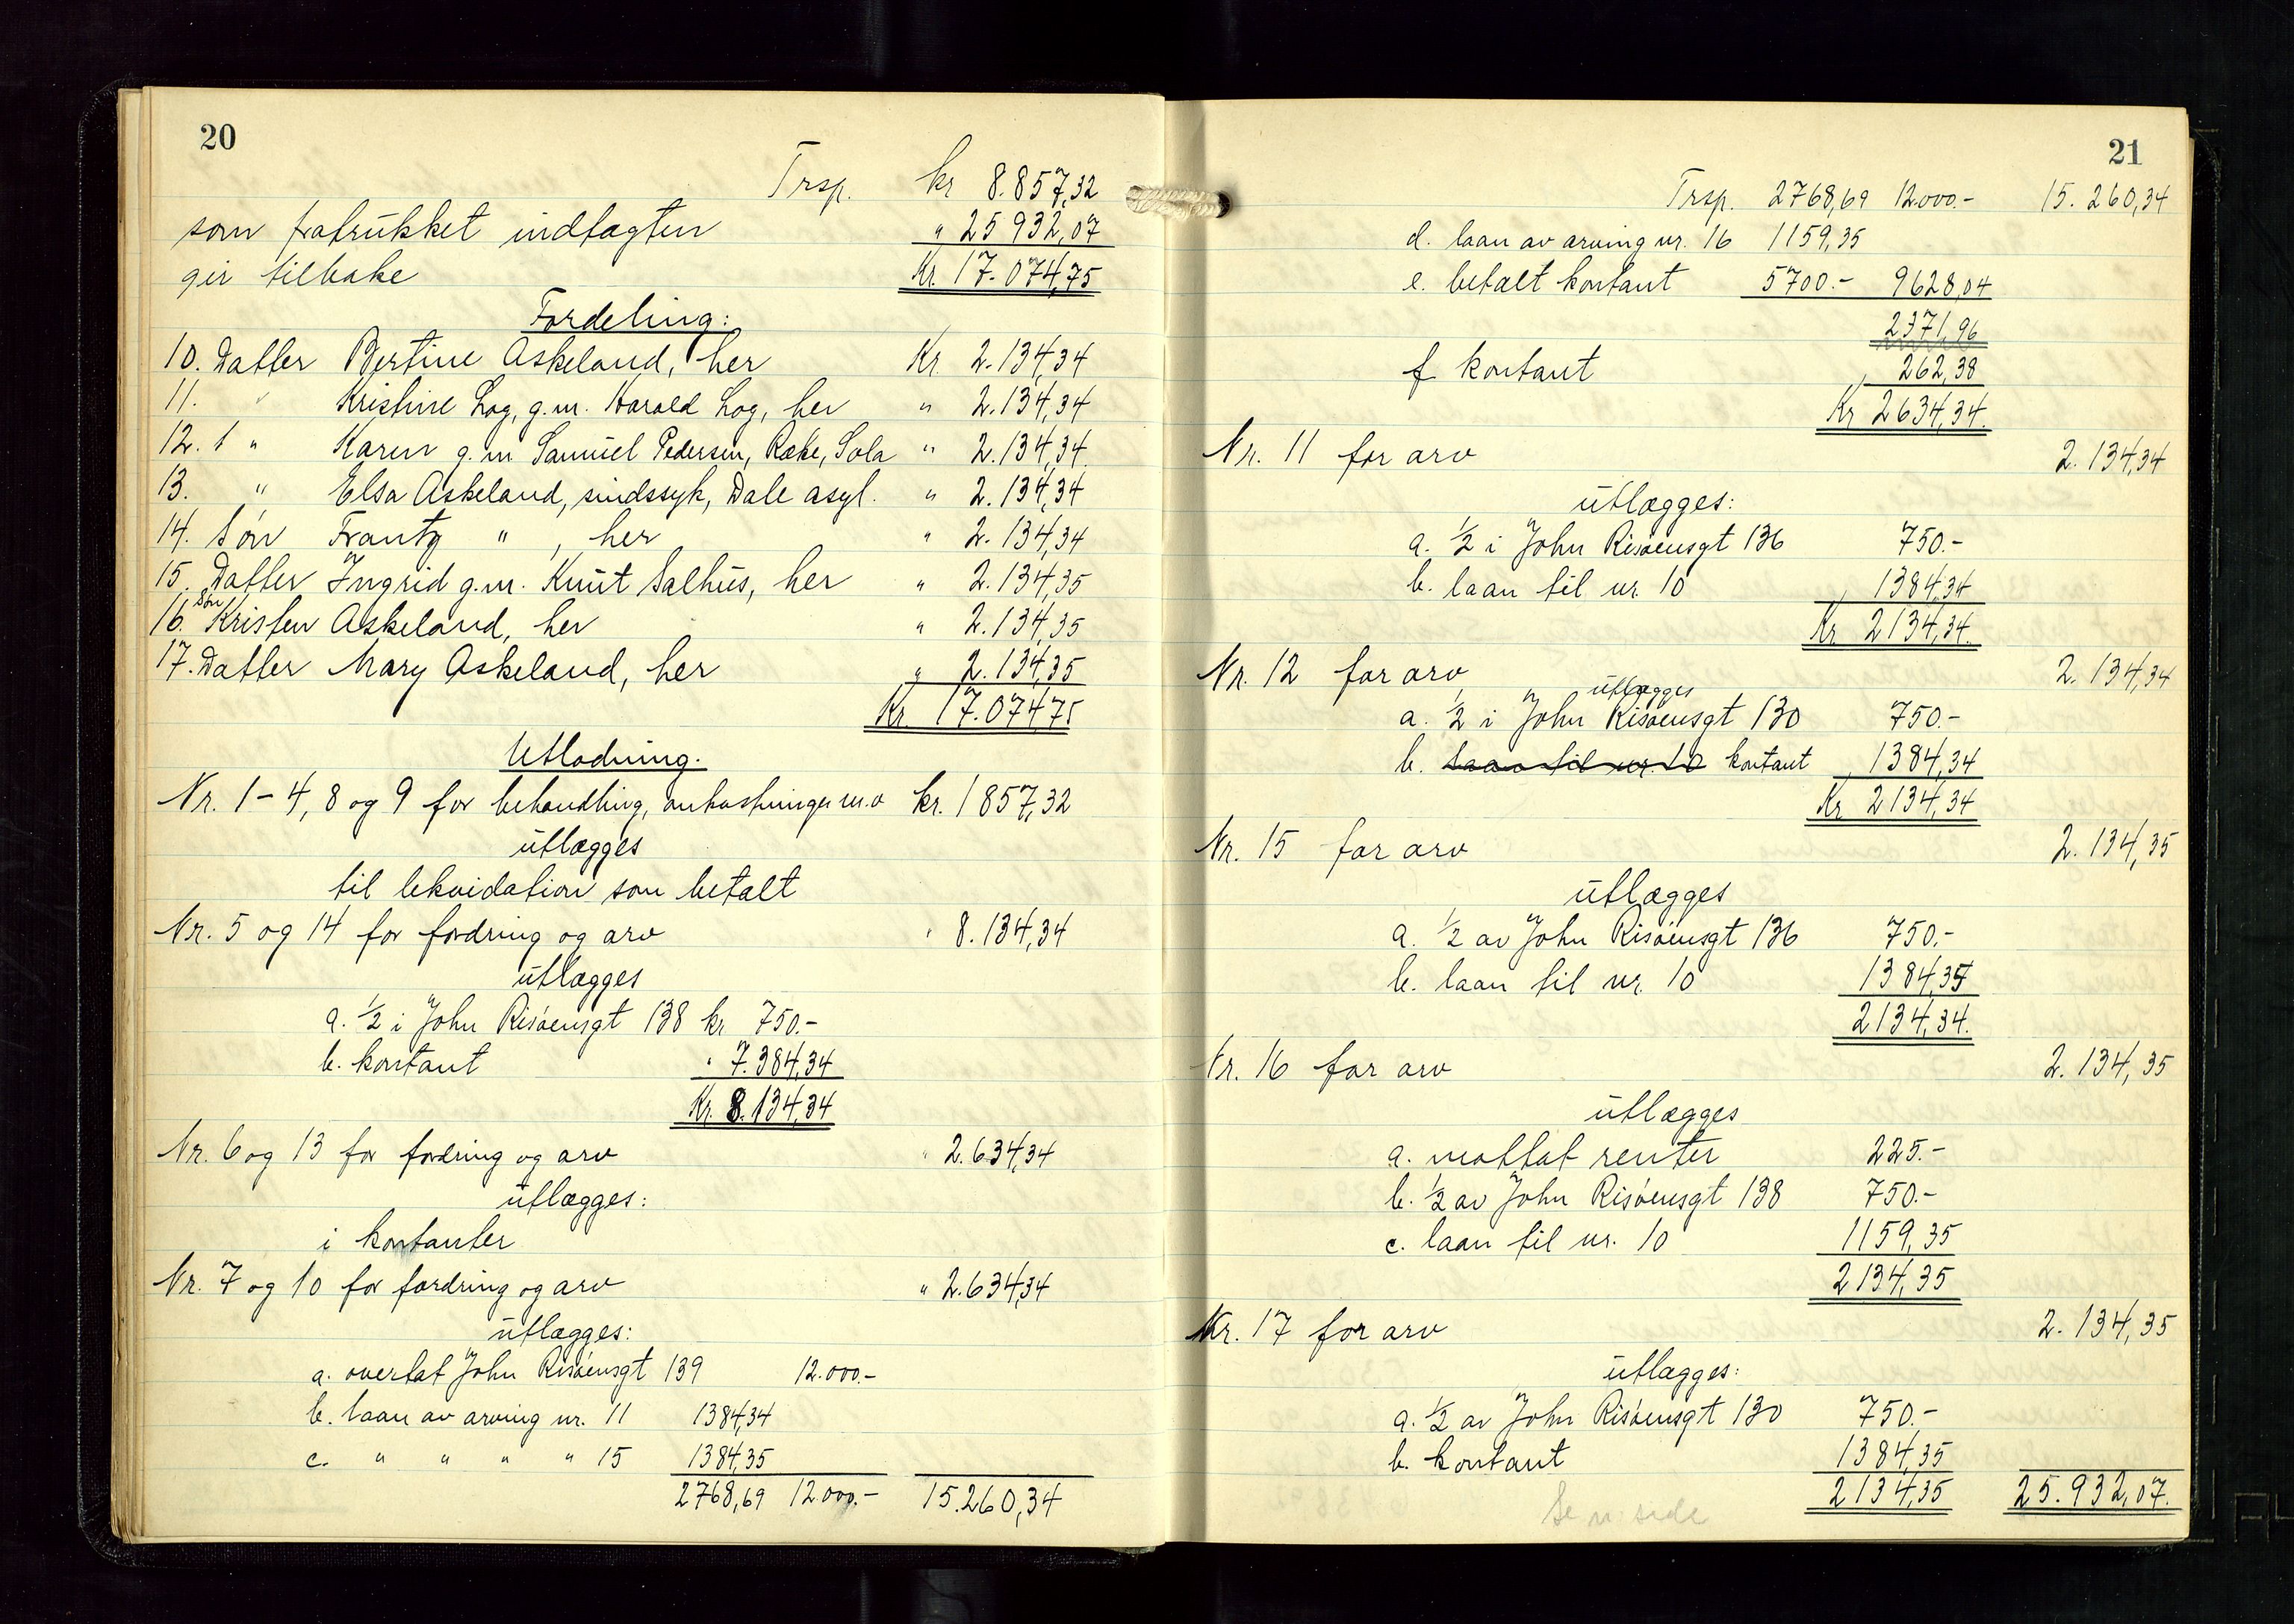 20
Trsp. kr 8.857,32
som fratrukket indtægten " 25932,07
gir tilbake Kr. 17.074,75
Fordeling:
10. Datter Bertine Askeland, her Kr. 2.134,34
11. " Kristine Log, g.m. Harald Log, her " 2.134,34
12. " Karen g.m. Samuel Pedersen, Ræke, Sola " 2.134,34
13. " Elsa Askeland, sindssyk, Dale asyl. " 2.134,34
14. Søn Frantz " , her " 2.134,34
15. Datter Ingrid g.m. Knut Salhus, her " 2.134,35
16. Søn Kristen Askeland, her " 2.134,35
17. Datter Mary Askeland, her " 2.134,35
Kr 17.074,75
Utlodning.
Nr. 1-4, 8 og 9 for behandling, omkostninger m.v kr. 1857,32
utlægges
til likvidation som betalt
Nr. 5 og 14 for fordring og arv " 8.134,34
utlægges
a. ½ i John Risøensgt 138 kr 750.-
b. kontant " 7.384,34
Kr. 8.134,34
Nr. 6 og 13 for fordring og arv " 2.634,34
utlægges:
i kontanter
Nr. 7 og 10 for fordring og arv " 2.634,34
utlægges:
a. overtat John Risøensgt 139 12.000.-
b. laan av arving nr. 11 1384,34
c. " " " " 15 1384,35
2768,69 12000.- 15.260,34
21
Trsp. 2768,69 12.000.- 15.260,34
d. laan av arving nr. 16 1159,35
e. betalt kontant 5700.- 9628,04
2371,96
f kontant 262,38
Kr 2634,34.
Nr. 11 for arv 2.134,34
utlægges:
a. ½ i John Risøensgt 136 750.-
b. laan til nr. 10 1384,34
Kr 2134,34.
Nr. 12 for arv 2.134,34
utlægges
a. ½ i John Risøensgt 130 750.-
b. laan til nr. 10 kontant 1384,34
Kr 2134,34
Nr. 15 for arv 2.134,35
utlægges
a. ½ av John Risøensgt 136 750.-
b. laan til nr. 10 1384,35
2134,34.
Nr. 16 for arv 2.134,35
utlægges
a. mottat renter 225.-
b. ½ av John Risøensgt 138 750.-
c. laan til nr. 10 1159,35
2134,35
Nr. 17 for arv 2.134,35
utlægges:
a. ½ av John Risøensgt 130 750.-
b. kontant 1384,35
2134,35 25.932,07.
Se n. side